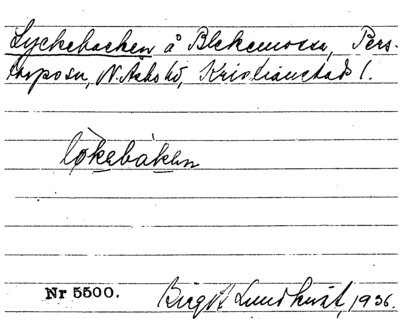 Lyckebacken å Blekemosu, Pers-
torposn, N. Åsbohd, Kristianstads l.
lökebákbn
Nr 5500.
Birgit Lundkvist, 1936.